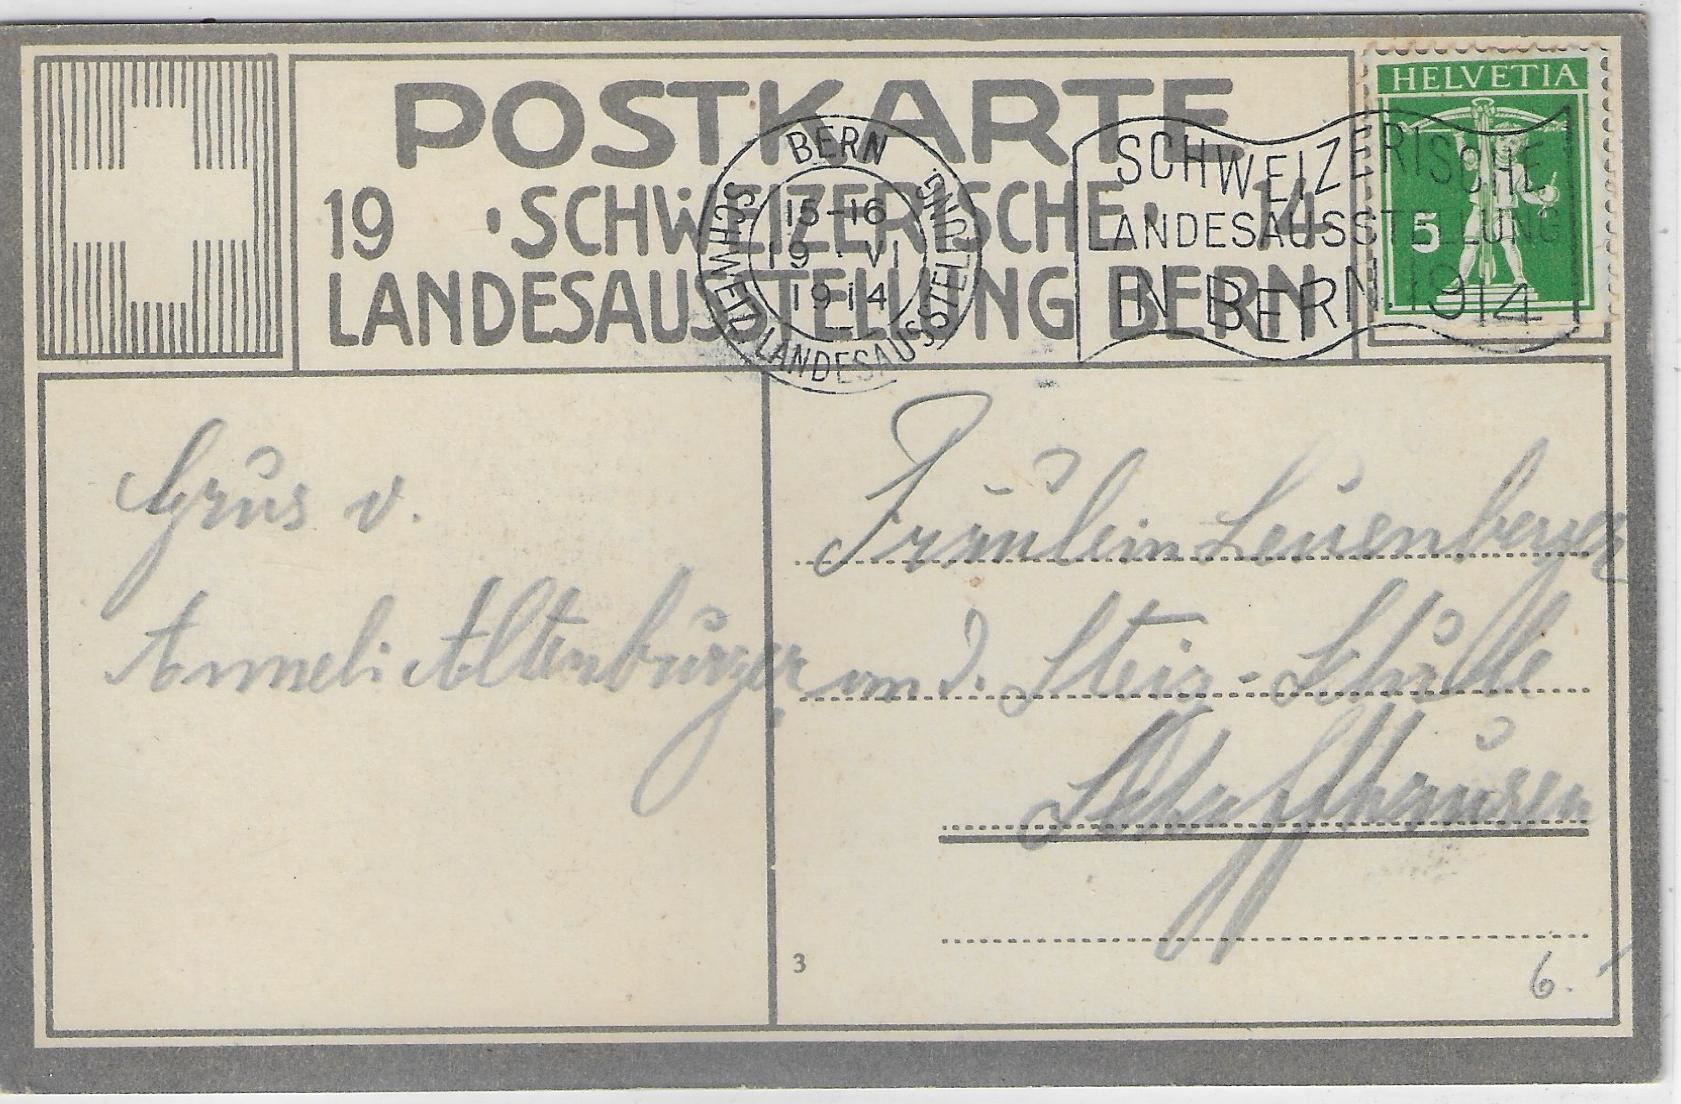 POSTKARTE
19 · SCHWEIZERISCHE · 14
LANDESAUSSTELLUNG BERN
HELVETIA
5
BERN
SCHWEIZ. LANDESAUSSTELLUNG.
15-16
19 · VI
1914
SCHWEIZERISCHE
LANDESAUSSTELLUNG
IN BERN. 1914
Grus v.
Anneli Altenburger
Fräulein Leuenberger
an d. Steig-Schule
Schaffhausen
3
6.